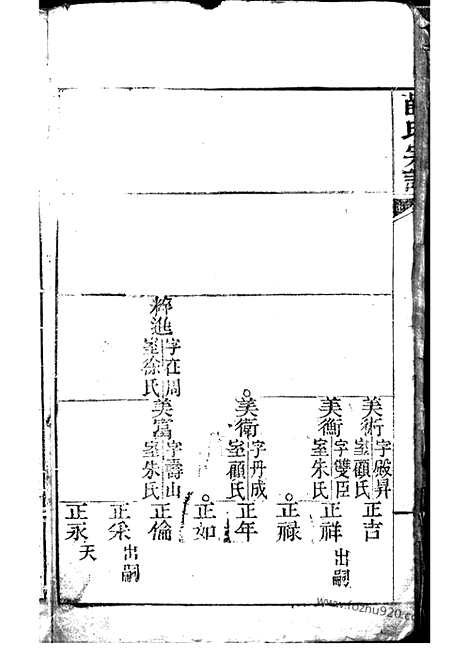 氏宗譜
美術 字殿昇 室顧氏
正吉
美衡 字雙臣 室朱氏
正祥 出嗣
正祿
美衛 字丹成 室顧氏
正年
正如
粹進 字在周 室徐氏
美富 字壽山 室朱氏
正倫
正采 出嗣
正永 夭
www.fozhu920.com